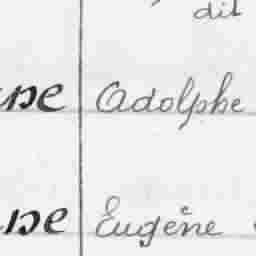 dit
Adolphe
Eugène